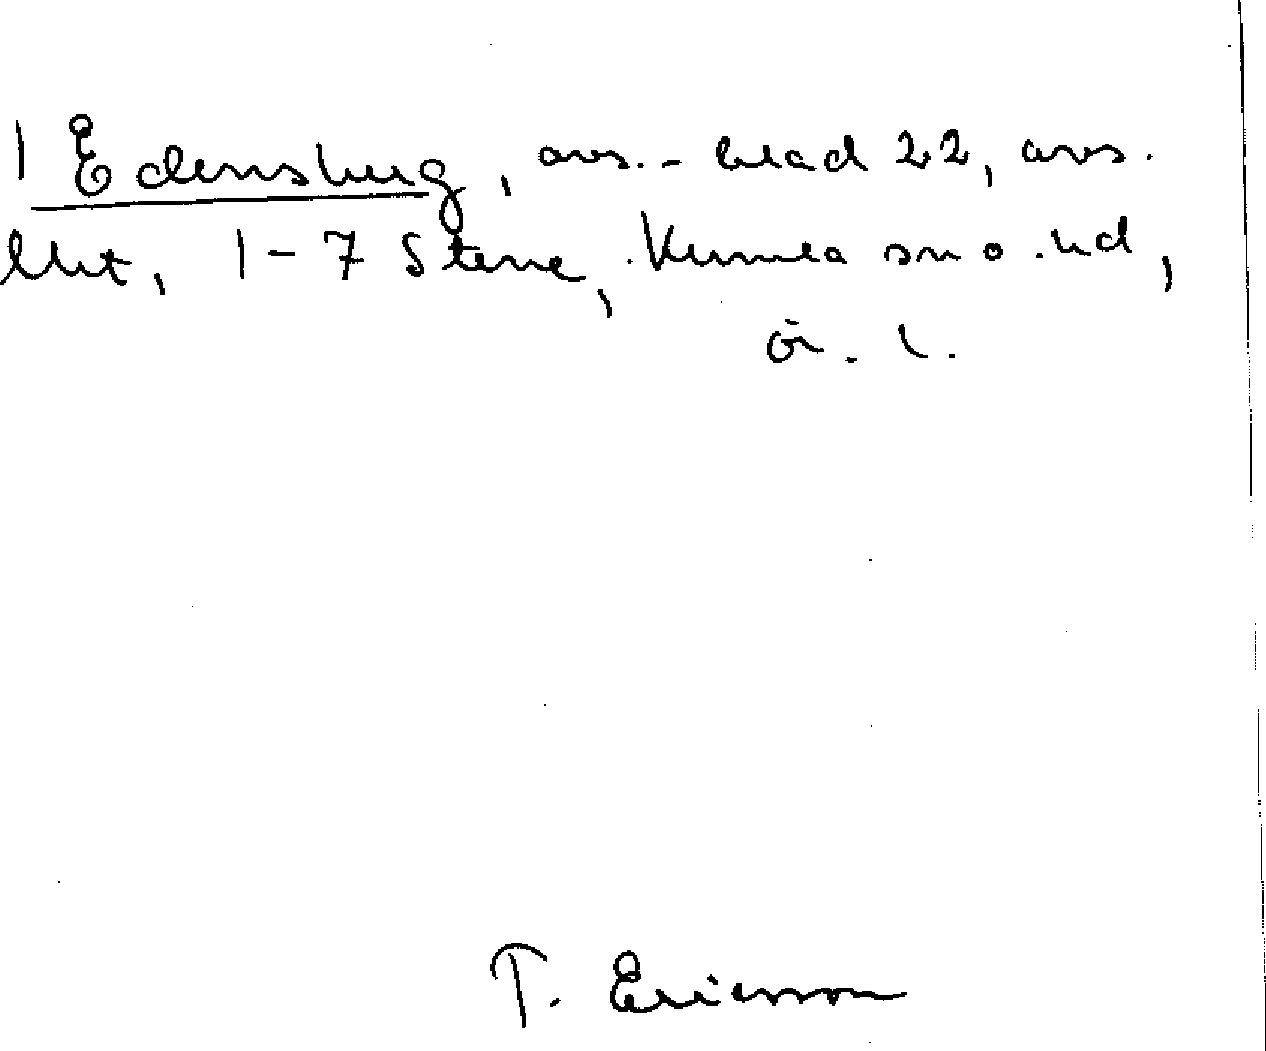 1 Edensberg, avs.-blad 22, avs.
1-7 Stene, Kumla sn o. hd,
ör. l.
T. Ericsson